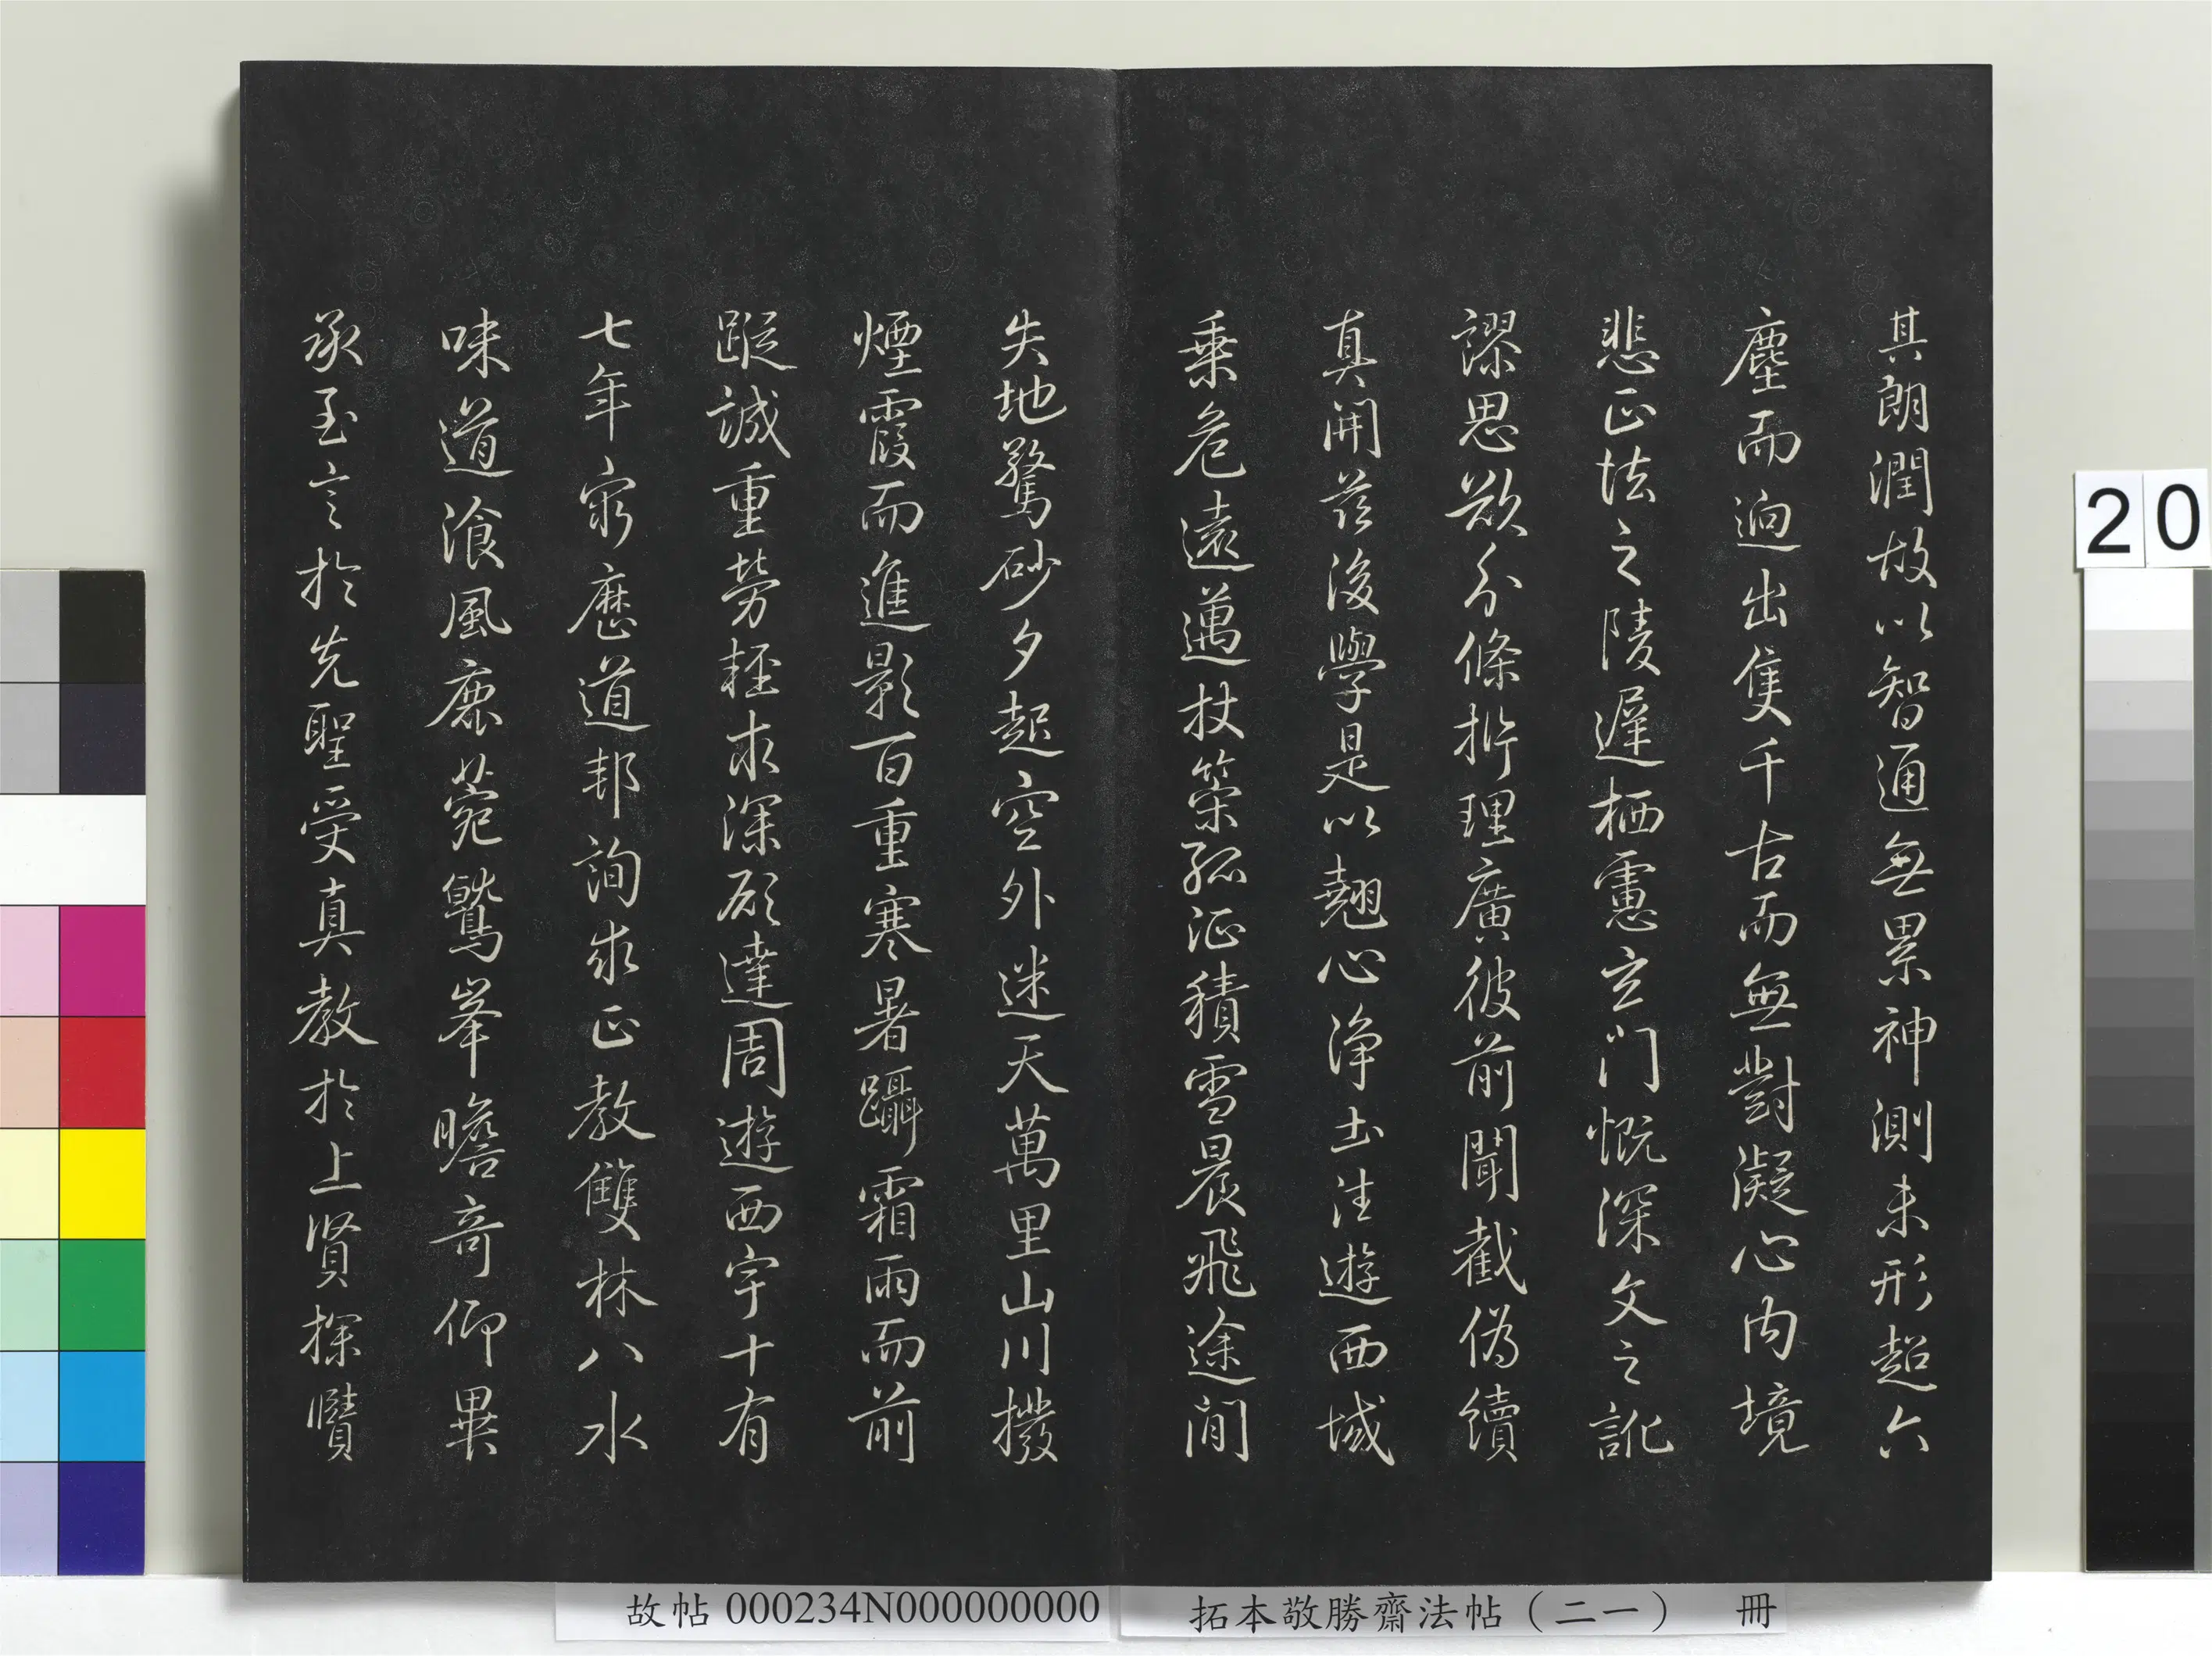 其朗潤故以智通無累神測未形超六
塵而迥出隻千古而無對凝心內境
悲正法之陵遲栖慮玄門慨深文之訛
謬思欲分條析理廣彼前聞截偽續
真開茲後學是以翹心淨土法遊西域
乗危遠邁杖策孤征積雪晨飛途間
失地驚砂夕起空外迷天萬里山川撥
煙霞而進影百重寒暑躡霜雨而前
蹤誠重勞輕求深願達周遊西宇十有
七年窮歷道邦詢求正教雙林八水
味道飡風鹿菀鷲峯瞻奇仰異
承至言於先聖受真教於上賢探賾
20
故帖 000234N000000000
拓本敬勝齋法帖（二一） 冊